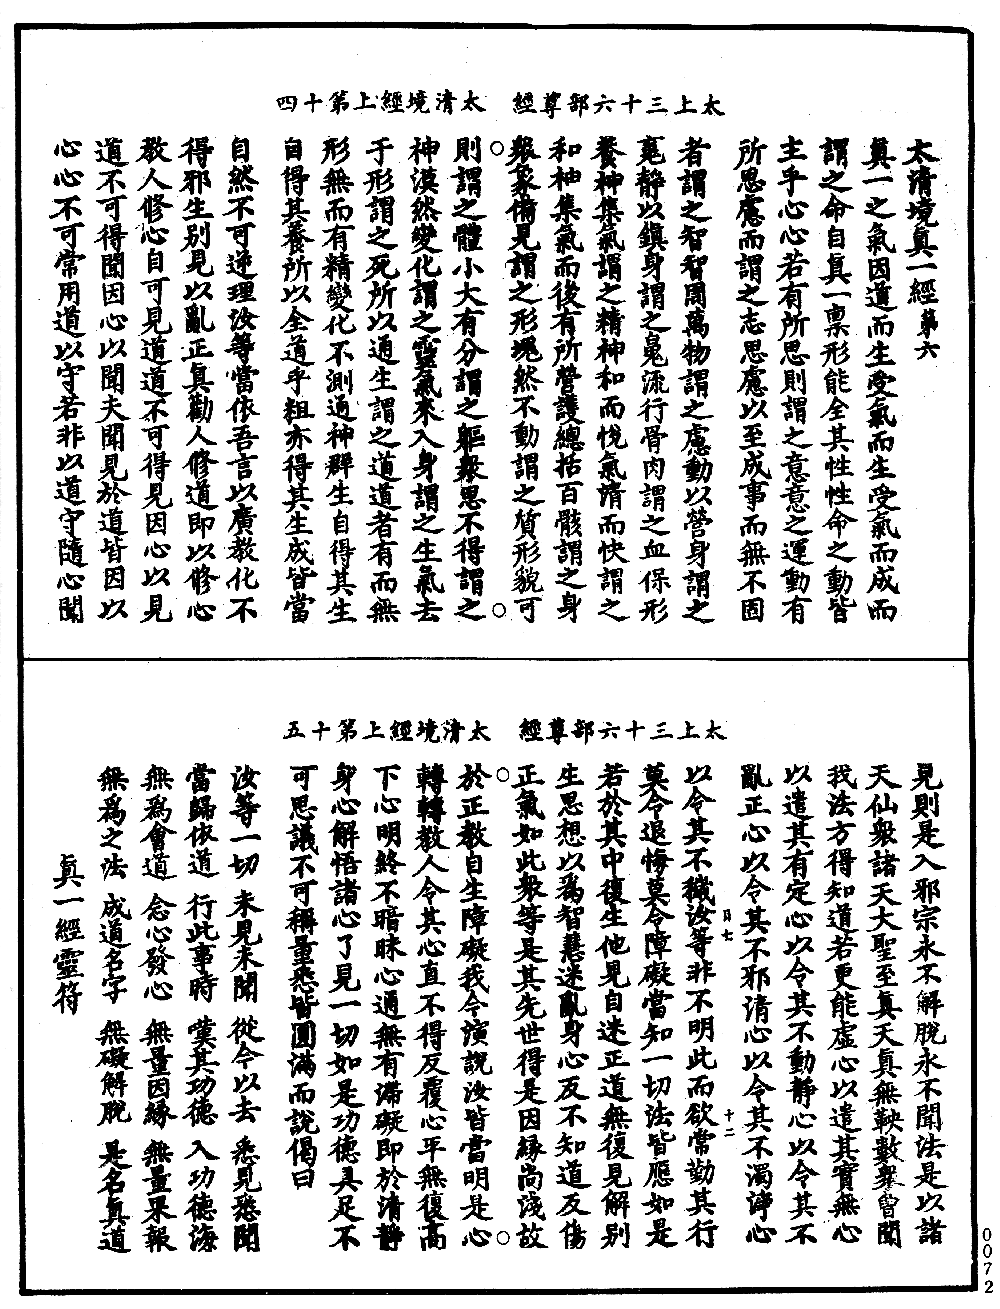 太上三十六部尊經　太清境經上第十四
太清境真一經第六
真一之氣因道而生受氣而生受氣而成而
謂之命自真一禀形能全其性性命之動皆
主乎心心若有所思則謂之意意之運動有
所思慮而謂之志思慮以至成事而無不固
者謂之智智周萬物謂之慮動以營身謂之
䰟静以鎮身謂之魄流行骨肉謂之血保形
養神集氣謂之精神和而悅氣清而快謂之
和柚集氣而後有所營護總括百骸謂之身
衆象備見謂之形塊然不動謂之質形貌可
則謂之體小大有分謂之軀衆思不得謂之
神漠然變化謂之靈氣來入身謂之生氣去
于形謂之死所以通生謂之道道者有而無
形無而有精變化不測通神群生自得其生
自得其養所以全道乎粗亦得其生成皆當
自然不可逆理汝等當依吾言以廣教化不
得邪生别見以亂正真勸人修道即以修心
教人修心自可見道道不可得見因心以見
道不可得聞因心以聞夫聞見於道皆因以
心心不可常用道以守若非以道守隨心聞
太上三十六部尊經　太清境經上第十五
見則是入邪宗永不解脫永不聞法是以諸
天仙衆諸天大聖至真天真無鞅數衆曾聞
我法方得知道若更能虚心以遣其實無心
以遣其有定心以令其不動静心以令其不
亂正心以令其不邪清心以令其不濁淨心
以令其不穢汝等非不明此而欲常勤其行
莫令退悔莫令障礙當知一切法皆應如是
若於其中復生他見自迷正道無復見解别
生思想以爲智慧迷亂身心反不知道反傷
正氣如此衆等是其先世得是因緣尚淺故
於正教自生障礙我今演說汝皆當明是心
轉轉教人令其心直不得反覆心平無復高
下心明終不暗昧心通無有滯礙即於清静
身心解悟諸心了見一切如是功德具足不
可思議不可稱量悉皆圓滿而說偈曰
汝等一切　未見未聞　從今以去　悉見悉聞
當歸依道　行此事時　嘆其功德　入功德海
無爲會道　念心發心　無量因緣　無量果報
無爲之法　成道名字　無礙解脫　是名真道
真一經靈符
月七
十二
0072